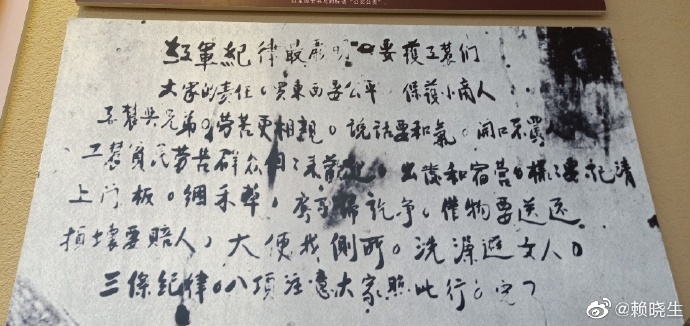 红軍紀律最嚴明 要護工農们
大家的責任。買東西要公平 保護小商人
工農與兄弟。劳苦更相親。說話要和氣。開口不罵人
工農貧民劳苦群众 出發和宿营。樣樣要記清
上门板。綑禾草，房子掃乾净。借物要送还
損壞要賠人，大便找側所。洗澡避女人。
三條紀律。八項注意大家照此行。完了
@赖晓生